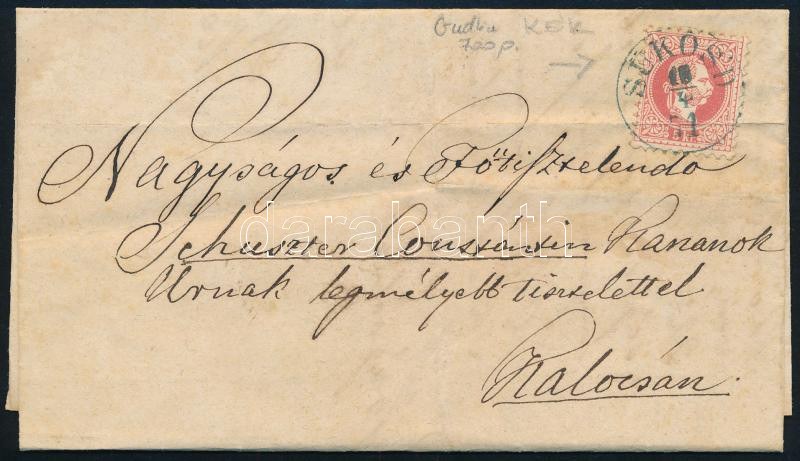 Gudlin KÉK
700p.
SÜKÖSD
18
4
71
Nagyságos és Főtisztelendo
Schuszter Consztántin Kananok
Urnak legmélyebb tisztelettel
Kalocsán.
darabanth